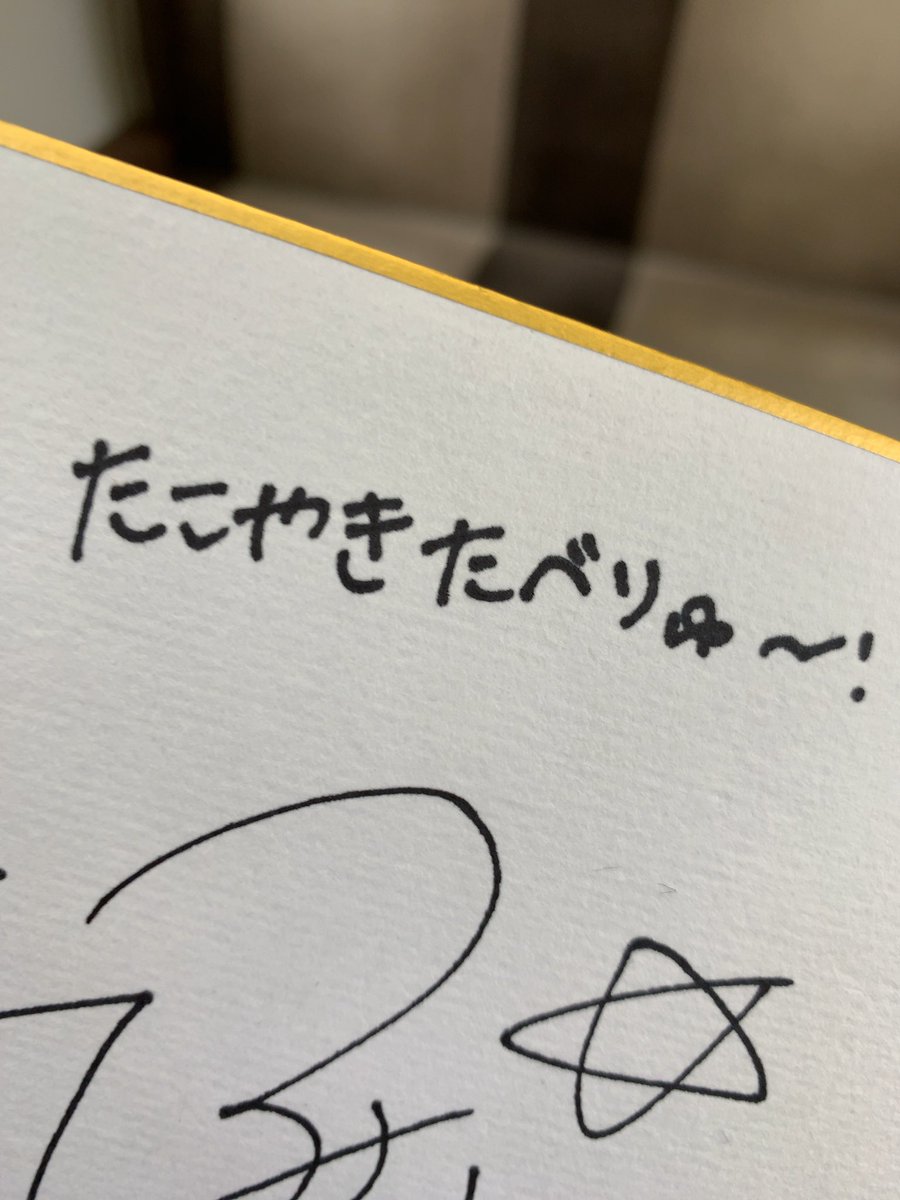 たこやきたべりゅ〜!